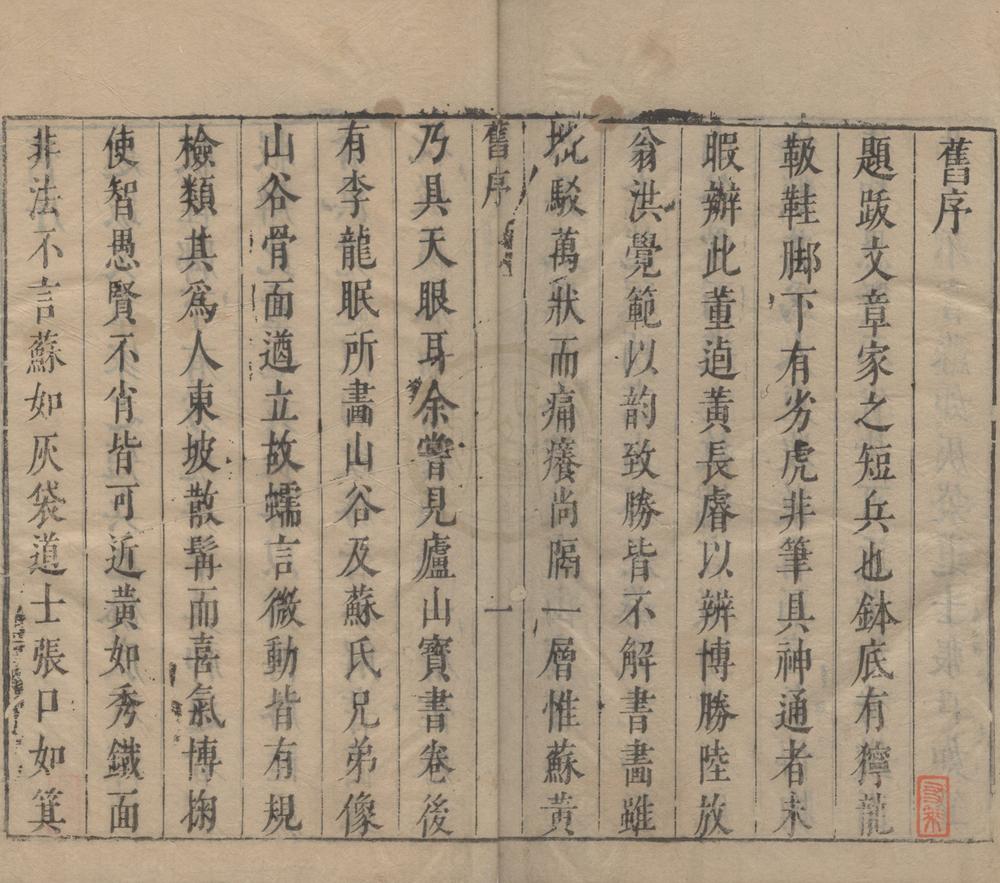 舊序
題跋文章家之短兵也鉢底有獰龍
靸鞋脚下有劣虎非筆具神通者未
暇辦此董逌黃長睿以辨博勝陸放
翁洪覺範以韵致勝皆不解書畫雖
玼駁萬狀而痛癢尚隔一層惟蘇黃
舊序
一
乃具天眼耳余嘗見廬山寶書卷後
有李龍眠所畵山谷及蘇氏兄弟像
山谷骨面遒立故蠕言微動皆有規
檢類其爲人東坡散髯而喜氣博掬
使智愚賢不肖皆可近黄如秀鐵面
非法不言蘇如灰袋道士張口如箕